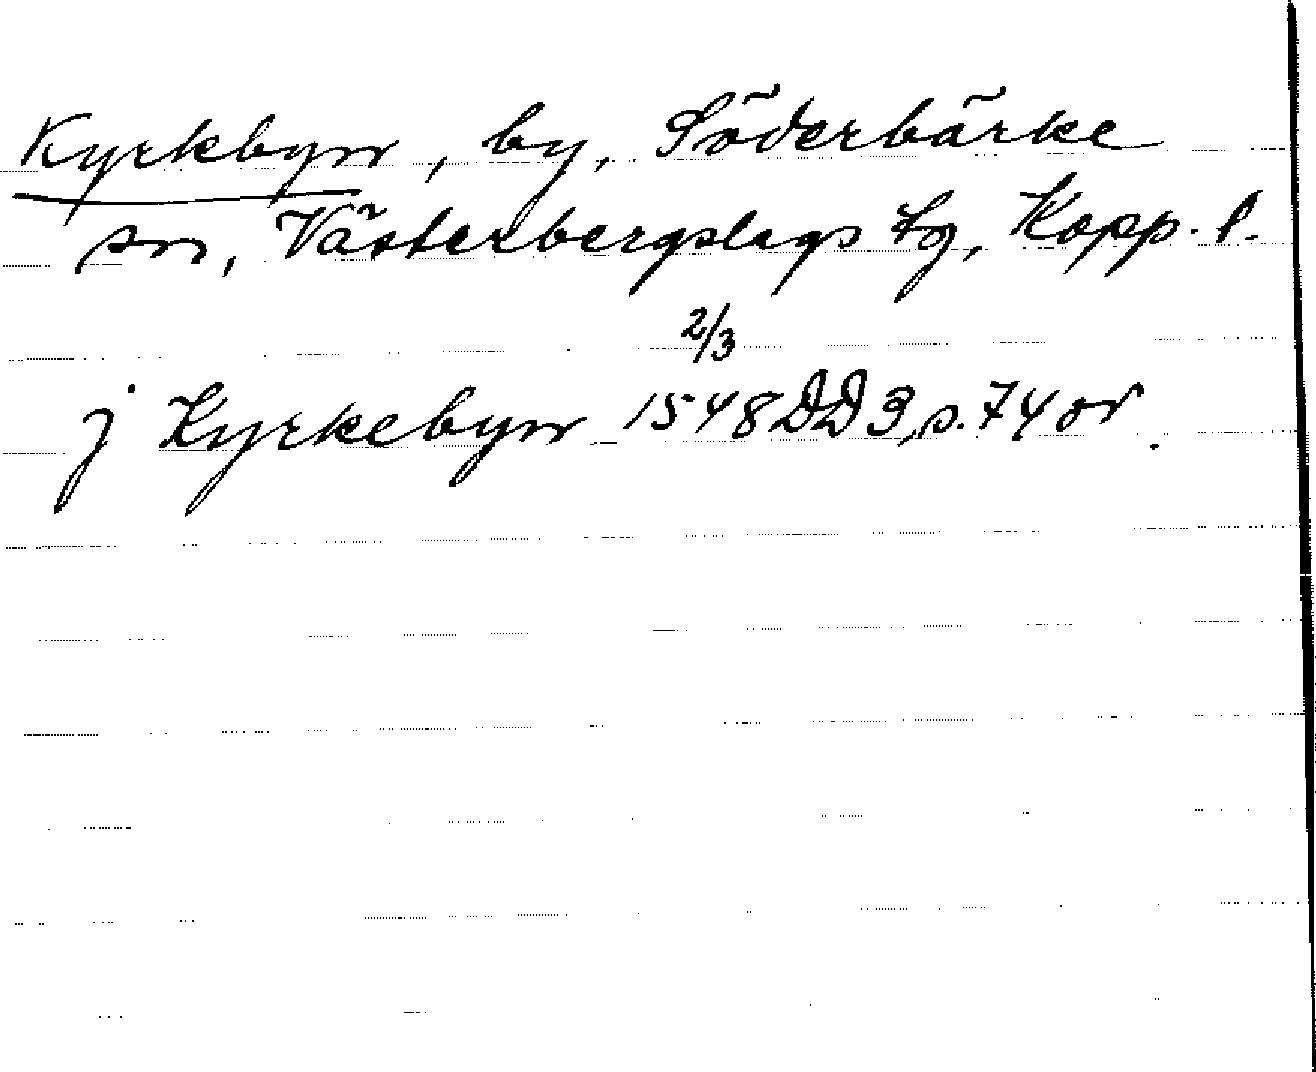 Kyrkbyn, by, Söderbärke
sn, Västerbergslags tg, Kopp. l.
2/3
j Kyrkebyn 1548 DD3, s. 74 or.